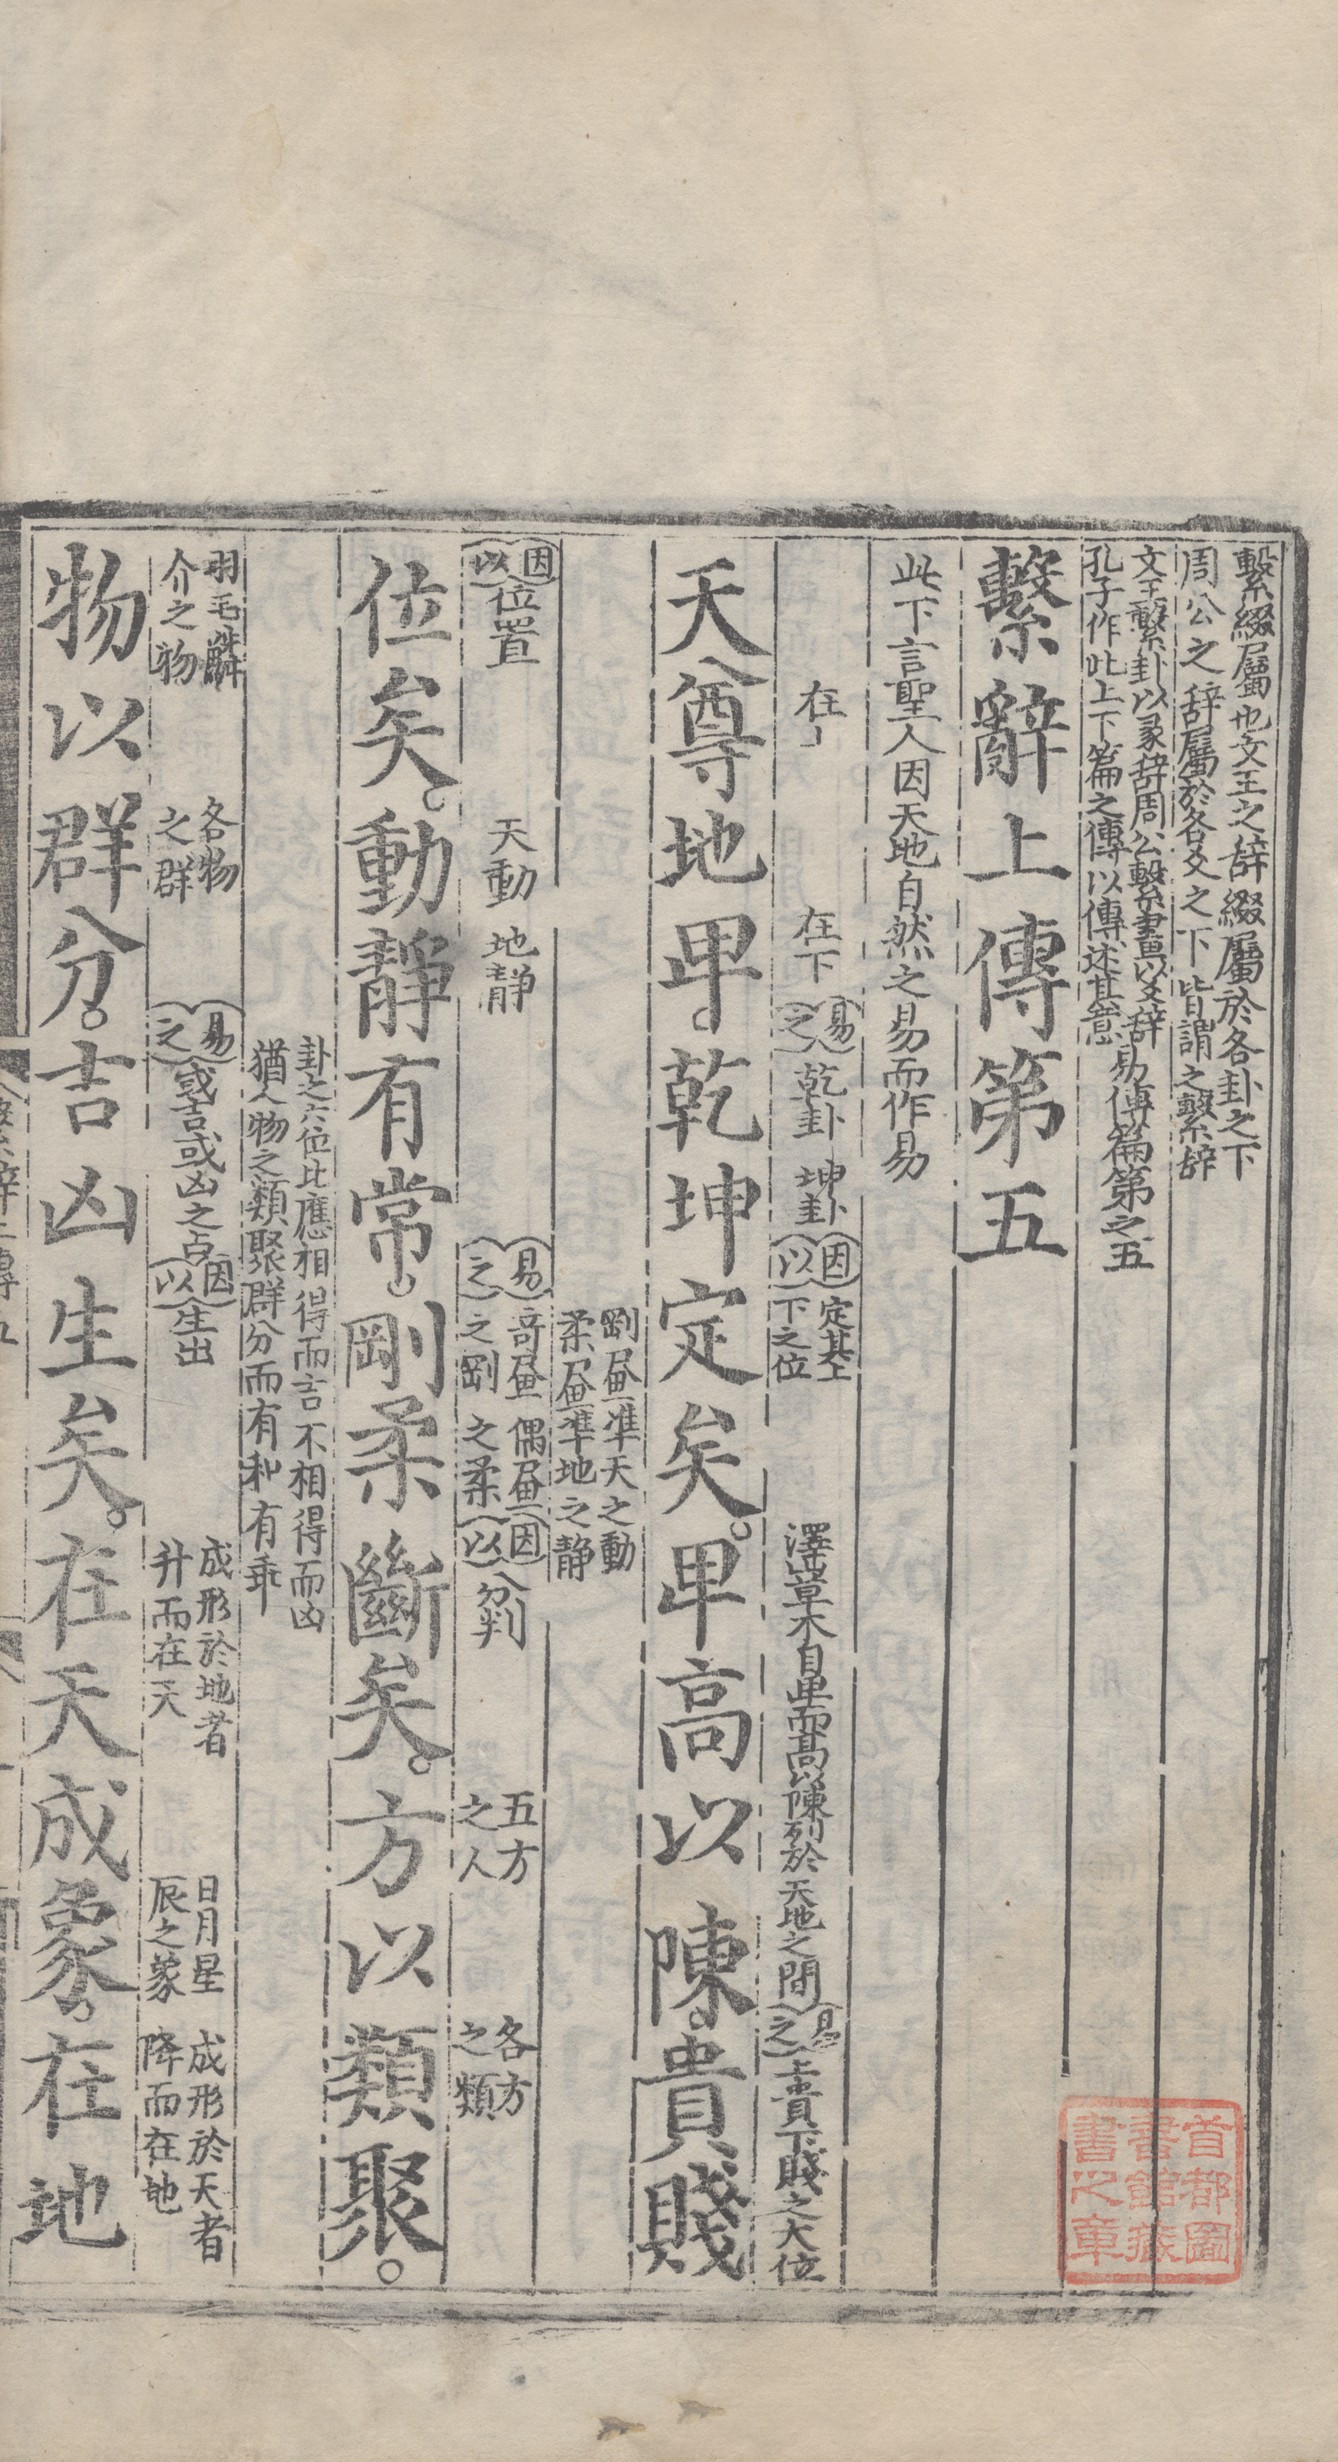 繫綴屬也文王之辞綴屬於各卦之下
周公之辞屬於各爻之下皆謂之繫辞
文王繫卦以彖辞周公繫畫以爻辞
孔子作此上下篇之傳以傳述其意
易傳篇第之五
繫辭上傳第五
此下言聖人因天地自然之易而作易
在上
在下
易之
乾卦
坤卦
因以
定其上
下之位
澤山草木自卑而髙以陳列於天地之間
易之
上貴下賤之大位
天尊地卑。乾坤定矣。卑高以陳。貴賤
剛畫準天之動
柔畫準地之静
因以
位置
天動
地静
易之
奇畫
之剛
偶畫
之柔
因以
分判
五方
之人
各方
之類
位矣。動靜有常。剛柔斷矣。方以類聚。
卦之六位比應相得而吉不相得而凶
猶人物之類聚群分而有和有乖
羽毛鱗
介之物
各物
之群
易之
或吉或凶之占
因以
生出
成形於地者
升而在天
日月星
辰之象
成形於天者
降而在地
物以群分。吉凶生矣。在天成象。在地
首都圖
書館藏
書之章